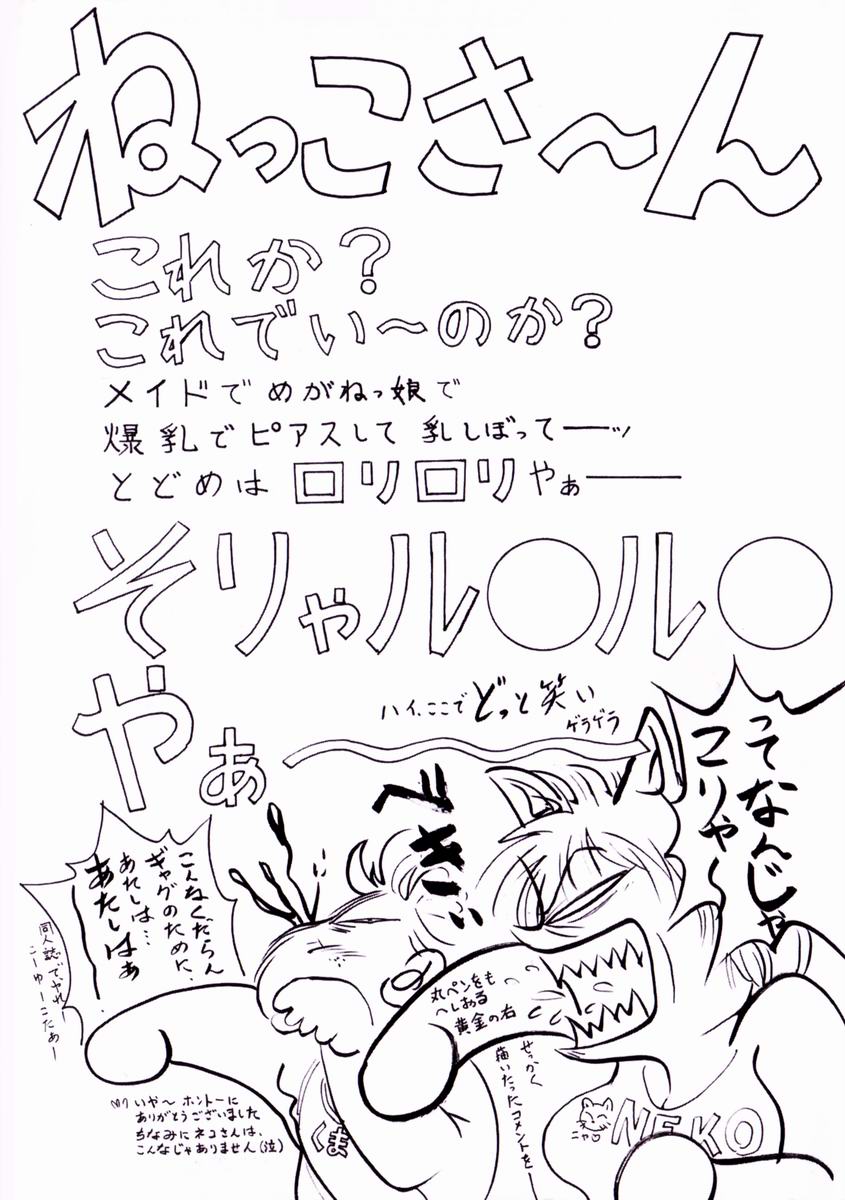 ねっこさ〜ん
これか?
これでい〜のか?
メイドでめがねっ娘で
爆乳でピアスして乳しぼってーッ
とどめはロリロリやぁー
そりゃル○ル○
やぁ
ハイ、ここでどっと笑い
ゲラゲラ
ってなんじゃ
こりゃ〜
べきぃ
こんなくだらん
ギャグのために、
あたしは…
あたしはぁ
同人誌でやれー
こーゆーこたぁー
丸ペンをも
へしおる
黄金の右
せっかく
描いたったコメントをー
いや〜 ホントーに
ありがとうございました
ちなみにネコさんは、
こんなじゃありません(泣)
くま
ニャ♡
NEKO